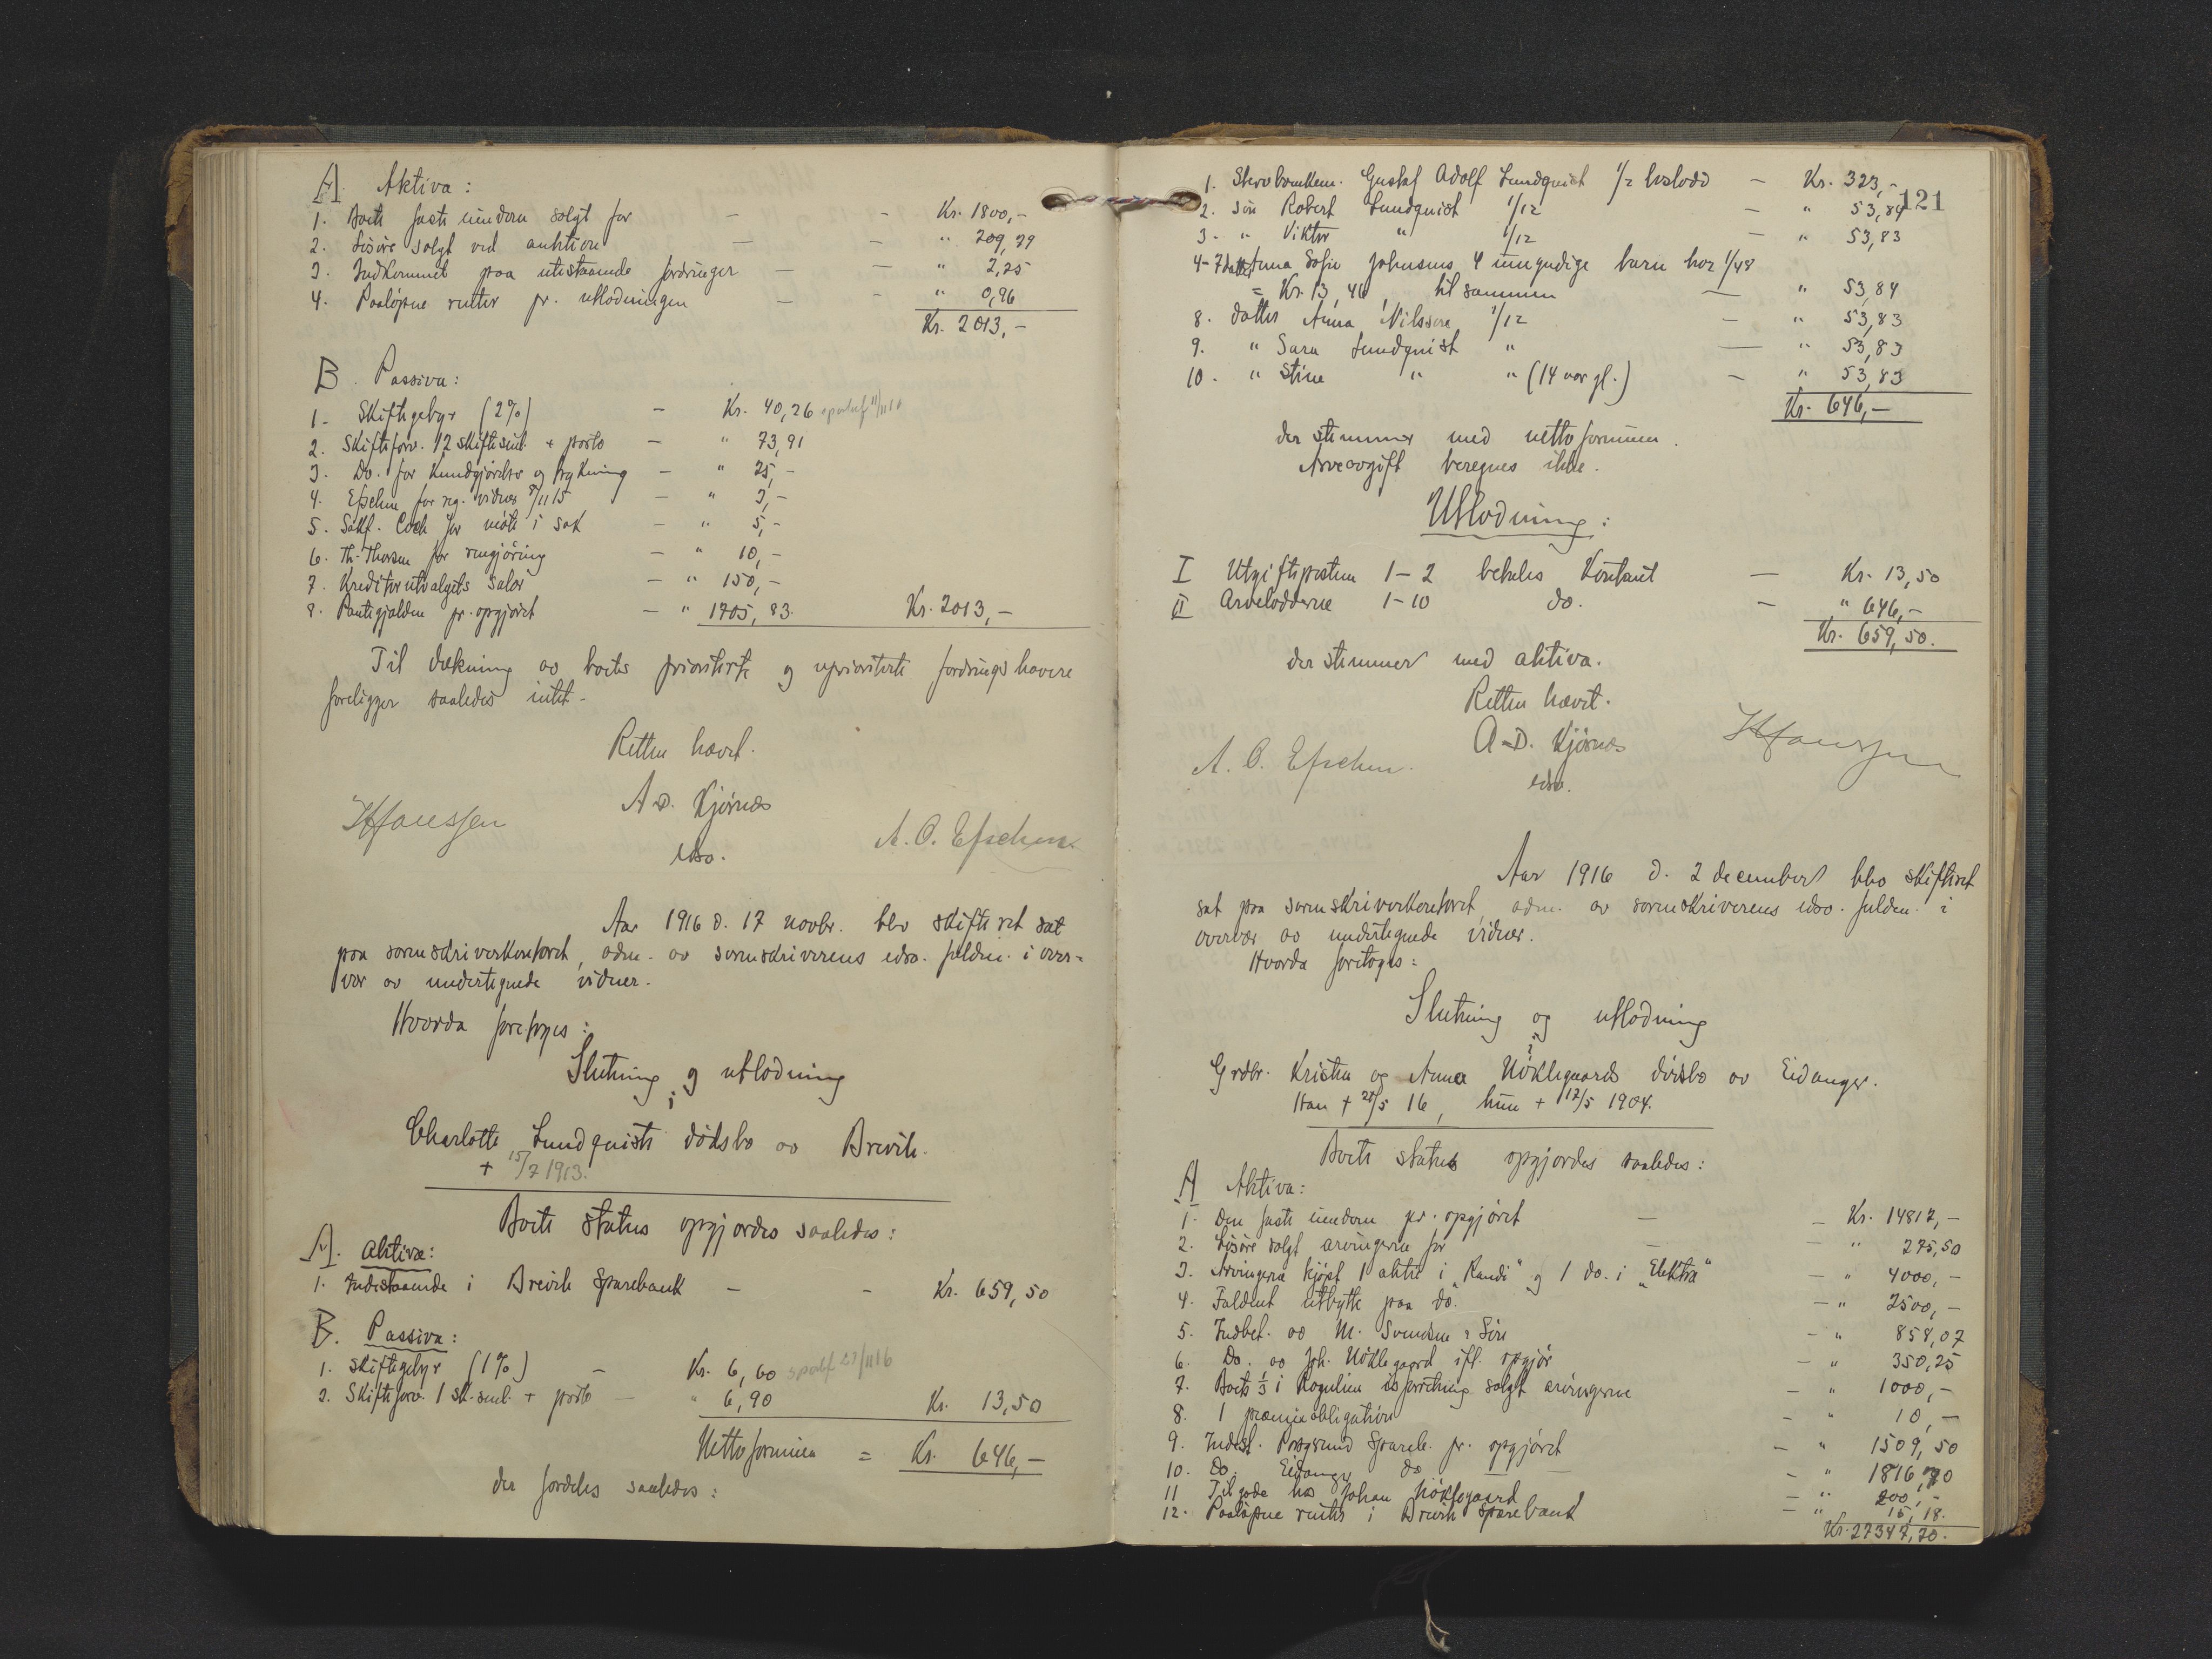 A. Aktiva:
1. Boets faste eiendom solgt for — - Kr. 1800,-
2. Løsøre solgt ved auktion — — " 209,79
3. Indkommet paa utestaaende fordringer — — " 2,25
4. Paaløpne renter pr. utlodningen — - " 0,96
Kr. 2013,-
B. Passiva:
1. Skiftegebyr (2%) - Kr. 40,26
2. Skifteforv. 12 skiftesml. + porto — " 73,91
3. Do. for kundgjørelse og trykning — " 25,-
4. for reg. vidner 8/11 15 — " 3,-
5. Sakf. Coch for møte i sak — " 5,-
6. Th. Thorsen for rengjøring — " 10,-
7. Kreditorutvalgets salær — " 150,-
8. Pantegjælden pr. opgjøret — " 1705,83. Kr. 2013,-
Til dækning av boets prioriterte og uprioriterte fordringshavere
foreligger saaledes intet.
Retten hævet.
A. D. Kjørnes
edsv.
Aar 1916 d. 17 novbr. blev skifteret sat
paa sorenskriverkontoret, adm. av sorenskriverens edsv. fuldm. i over-
vær av undertegnede vidner.
Hvorda foretoges:
Slutning og utlodning
i
Charlotte Lundquists dødsbo av Brevik.
+ 15/7 1913.
Boets status opgjordes saaledes:
A. aktiva:
1. Indestaaende i Brevik Sparebank - - Kr. 659,50
B. Passiva:
1. Skiftegebyr (1%) - Kr. 6,60
2. Skifteforv. 1 sk.sml. + porto — " 6,90 Kr. 13,50
Nettoformuen = Kr. 646,-
der fordeles saaledes:
121
1. Gustaf Adolf Lundquist 1/2 — Kr. 323,-
2. søn Robert Lundquist 1/12 — " 53,84
3. " Viktor " 1/12 — " 53,83
4-7 datter Anna Sofie Johnsens 4 umyndige barn hver 1/48
= Kr. 13,46, tilsammen — " 53,84
8. datter Anna Nilssen 1/12 — " 53,83
9. " Sara Lundquist " — " 53,83
10. " Stine " " (14 aar gl.) — " 53,83
Kr. 646,-
der stemmer med nettoformuen.
Arveavgift beregnes ikke.
Utlodning:
I Utgiftsposten 1-2 betales kontant — Kr. 13,50
II Arvelodderne 1-10 do. — " 646,-
Kr. 659,50.
der stemmer med aktiva.
Retten hævet.
A. D. Kjørnes
edsv.
Aar 1916 d. 2 december blev skifteret
sat paa sorenskriverkontoret, adm. av sorenskriverens edsv. fuldm. i
overvær av undertegnede vidner.
Hvorda foretoges:
Slutning og utlodning
i
Grdbr. Kristen og Anna Nøklegaards dødsbo av Eidanger.
Han + 28/5 16, hun + 17/5 1904.
Boets status opgjordes saaledes:
A Aktiva:
1. Den faste eiendom pr. opgjøret — — Kr. 14817,-
2. Løsøre solgt arvingerne for — — " 275,50
3. Arvingerne kjøpt 1 aktie i "Randi" og 1 do. i "Elektra" — " 4000,-
4. Faldent utbytte paa do. — " 2500,-
5. Indbet. av M. Svendsen — " 858,07
6. Do. av Joh. Nøklegaard ifl. opgjør — " 350,25
7. Boets 1/3 i isforretning solgt arvingerne — " 1000,-
8. 1 præmieobligation — " 10,-
9. Indest. Porsgrund Spareb. pr. opgjøret — " 1509,50
10. Do. Eidanger do — — " 1816,70
11 Tilgode hos Johan Nøklegaard — " 200,-
12. Paaløpne renter i Brevik Sparebank — " 15,18.
Kr. 27347,20.